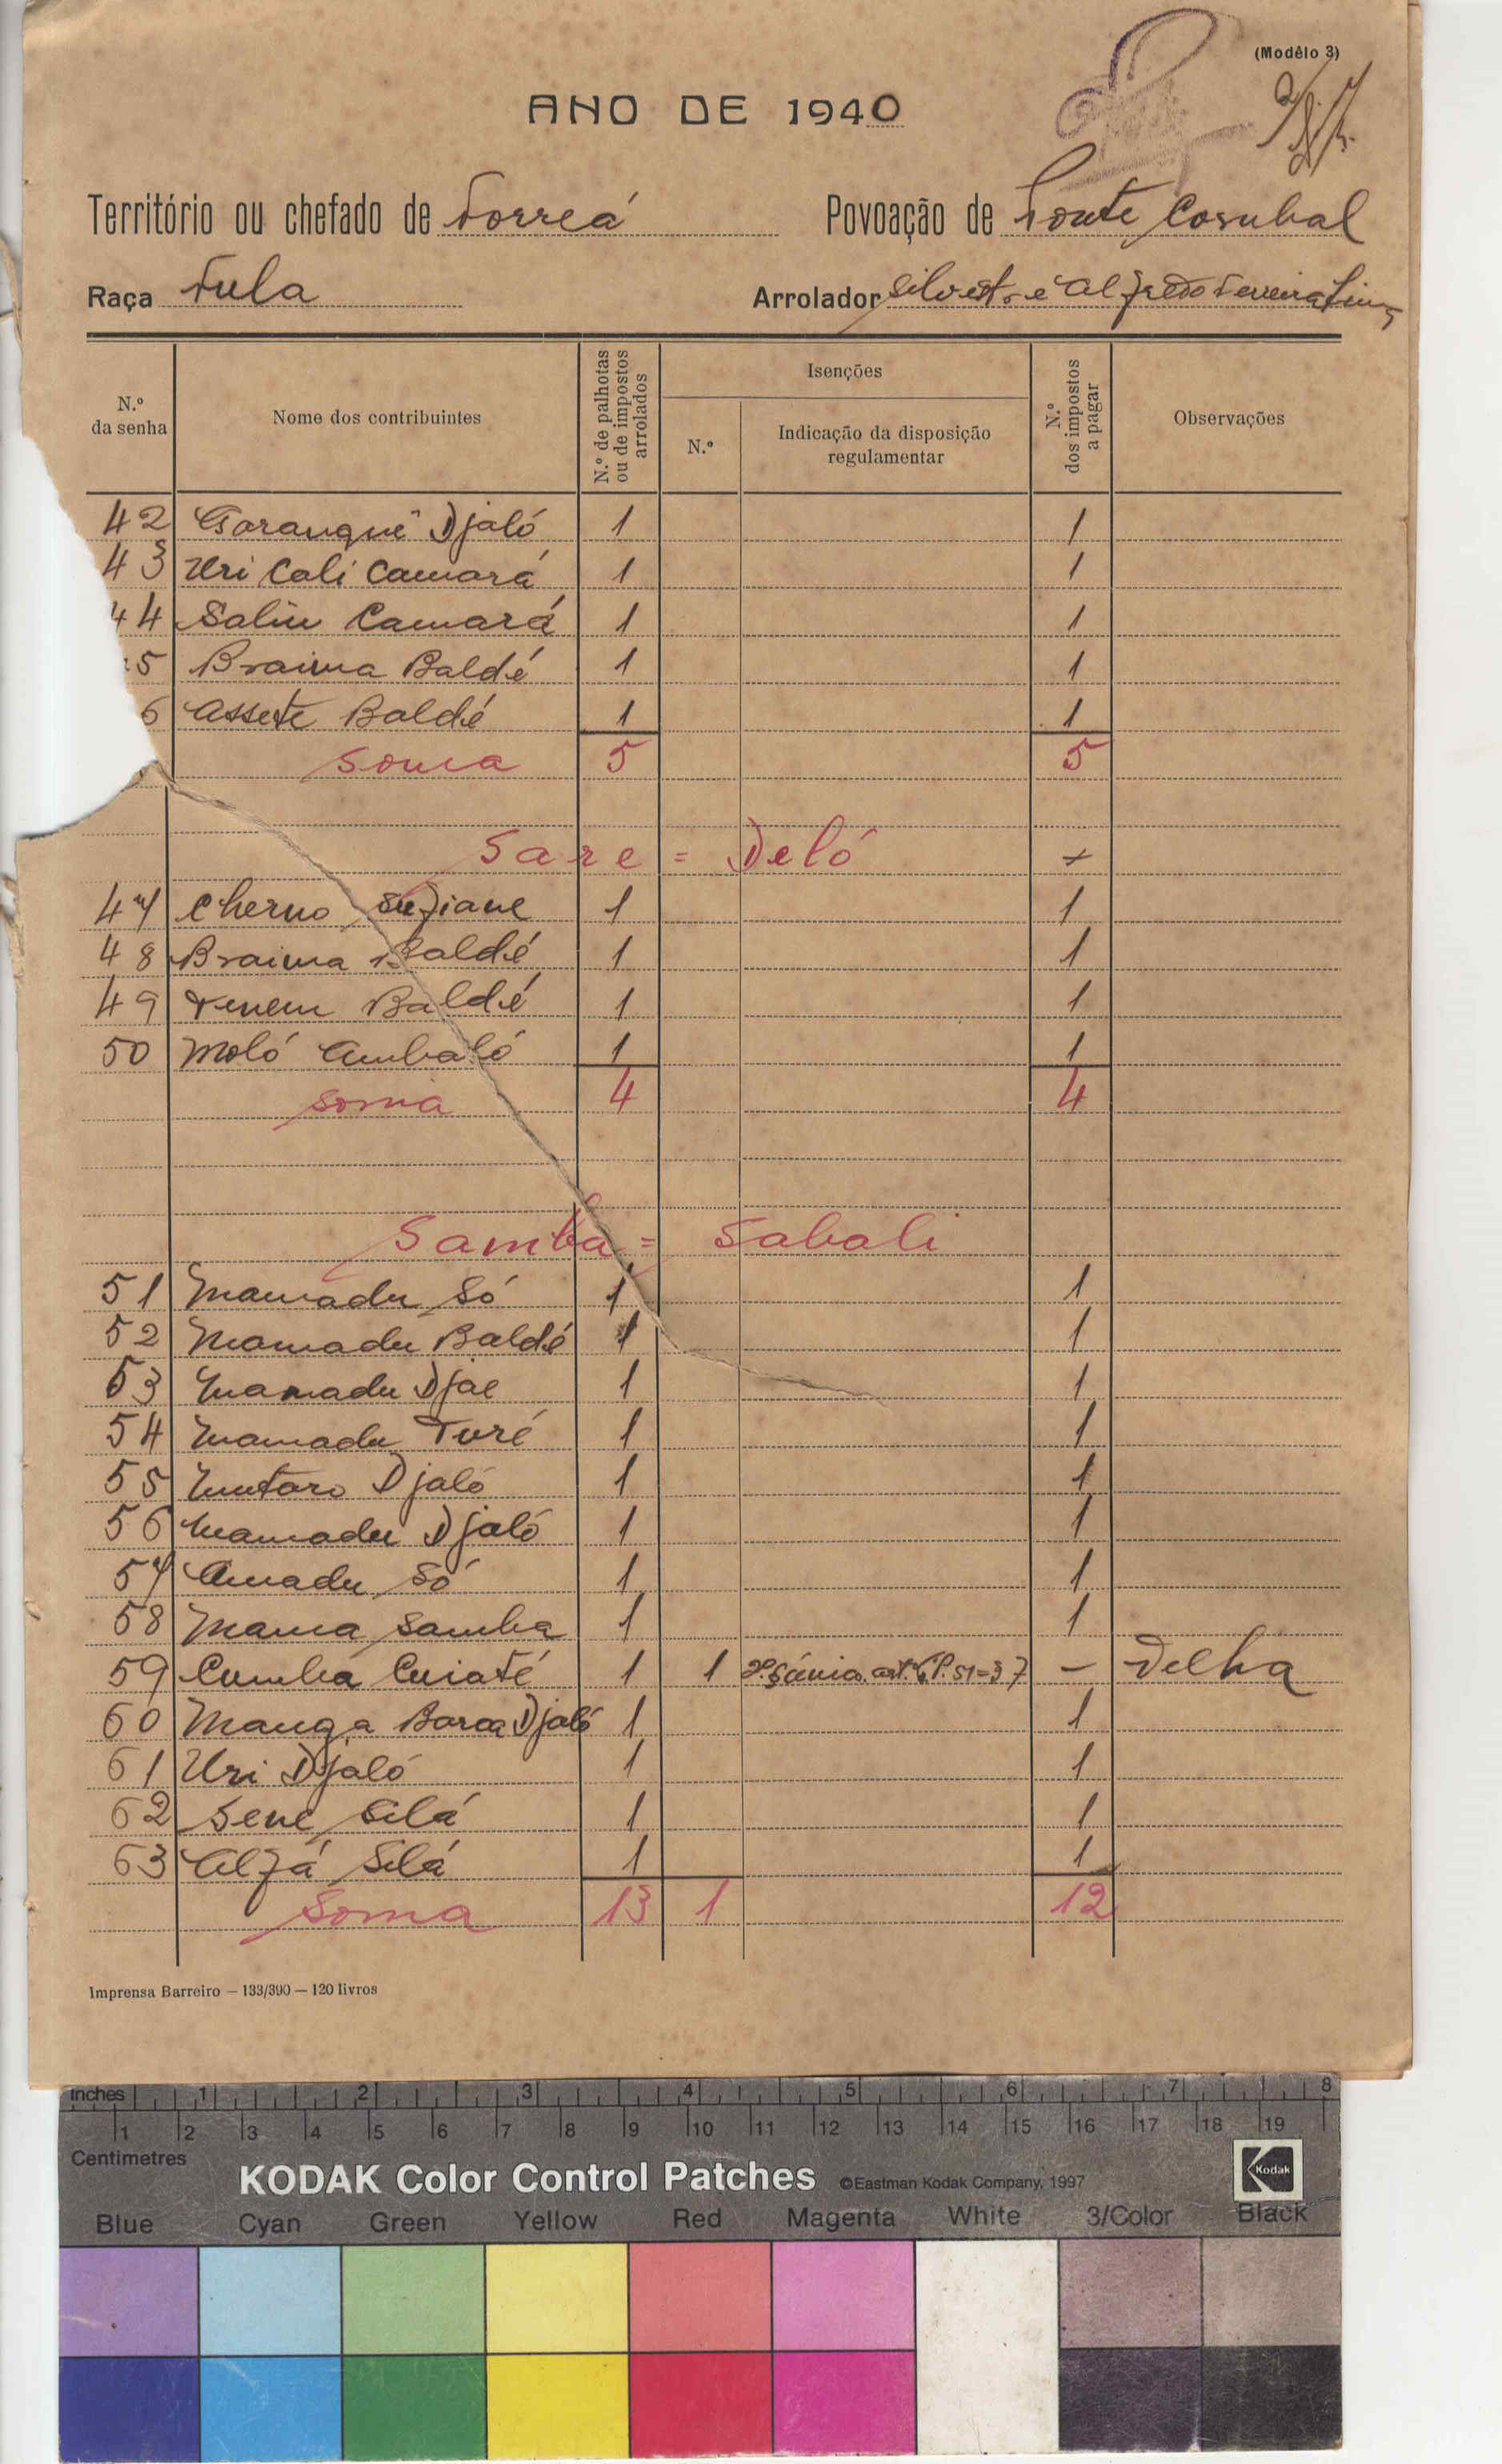 (Modêlo 3)
ANO DE 1940
Território ou chefado de Forreá Povoação de Ponte Corubal
Raça Fula Arrolador Silvestre Alfredo Ferreira Lima
N.º da senha
Nome dos contribuintes
N.º de palhotas ou de impostos arrolados
Isenções
N.º
Indicação da disposição regulamentar
N.º dos impostos a pagar
Observações
42 Garanquê Djaló 1 1
43 Uri Cali Camará 1 1
44 Saliu Camará 1 1
5 Braima Baldé 1 1
6 Assete Baldé 1 1
Soma 5 5
Sare = Deló
47 Cherno Sufiane 1 1
48 Braima Baldé 1 1
49 Tenem Baldé 1 1
50 Moló Ambaló 1 1
Soma 4 4
Samba = Sabali
51 Mamadu Só 1 1
52 Mamadu Baldé 1 1
53 Mamadu Djae 1 1
54 Mamadu Turé 1 1
55 Mutaro Djaló 1 1
56 Mamadu Djaló 1 1
57 Amadu Só 1 1
58 Mama Samba 1 1
59 Cumba Cuiaté 1 1 art. P. 51=37 – Velha
60 Manga Baroa Djaló 1 1
61 Uri Djaló 1 1
62 Sene Silá 1 1
63 Alfá Silá 1 1
Soma 13 1 12
Imprensa Barreiro — 133/390 — 120 livros
inches 1 2 3 4 5 6 7 8
1 2 3 4 5 6 7 8 9 10 11 12 13 14 15 16 17 18 19
Centimetres
KODAK Color Control Patches ©Eastman Kodak Company, 1997 Kodak
Blue Cyan Green Yellow Red Magenta White 3/Color Black